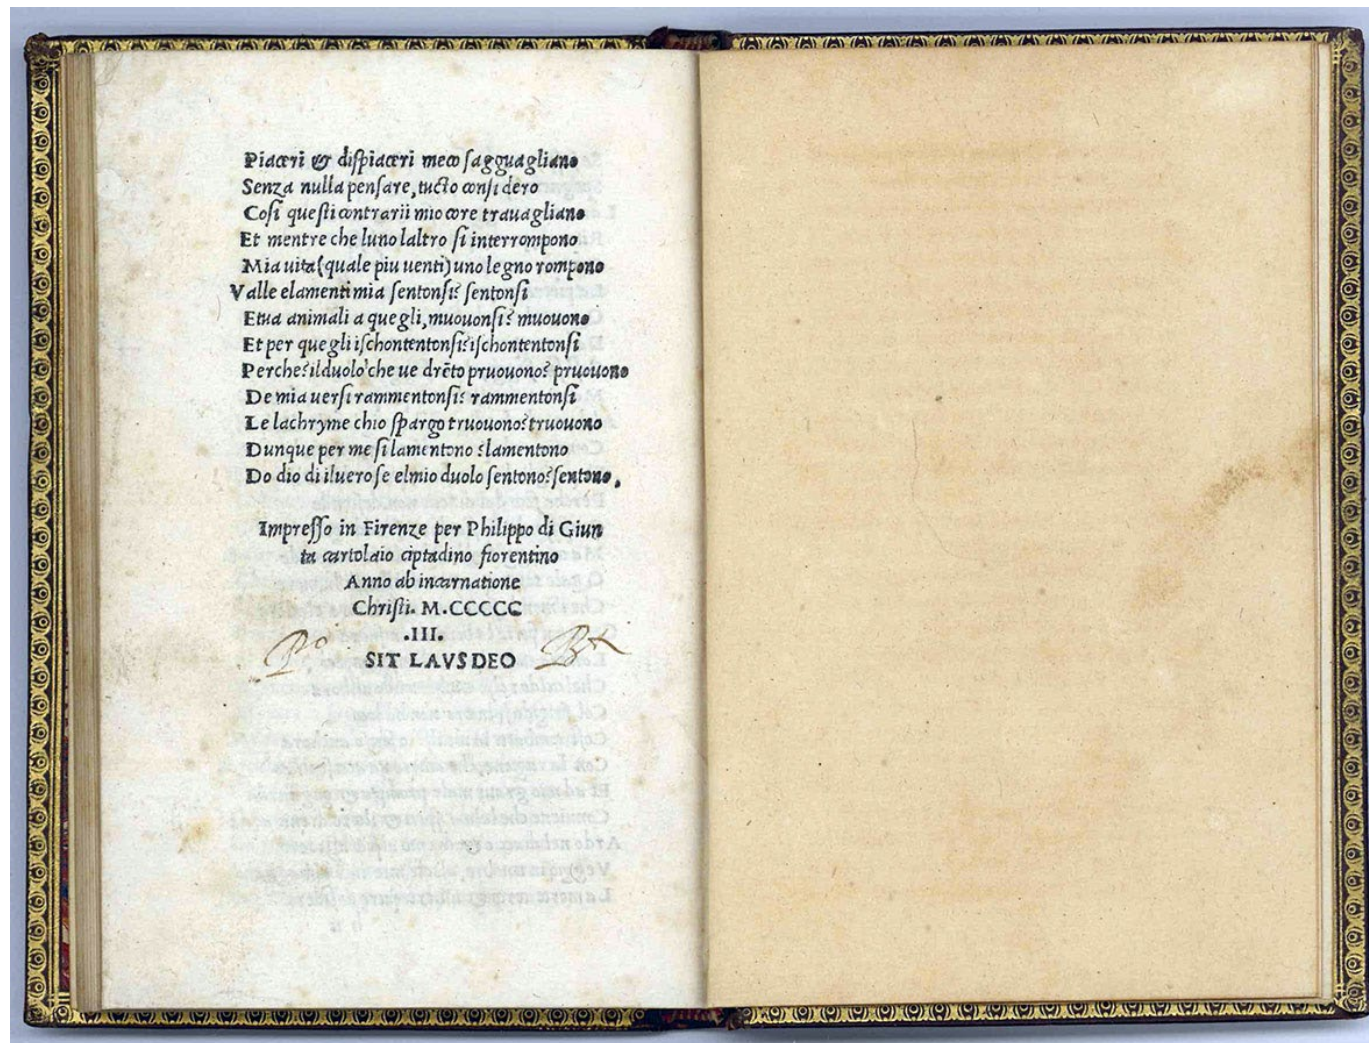 Piaceri & dispiaceri meco sagguagliano
Senza nulla pensare, tucto consi dero
Cosi questi contrarii mio core travagliano
Et mentre che luno laltro si interrompono
Mia uita (quale piu uenti) uno legno rompono
Valle elamenti mia sentonsi? sentonsi
Etua animali a quegli, muouonsi? muouono
Et per quegli ischontentonsi? ischontentonsi
Perche? il duolo che ue drēto pruouono? pruouono
De mia uersi rammentonsi? rammentonsi
Le lachryme chio spargo truouono? truouono
Dunque per me si lamentono? lamentono
Do dio di iluero se elmio duolo sentono? sentono,
Impresso in Firenze per Philippo di Giun
ta cartolaio ciptadino fiorentino
Anno ab incarnatione
Christi. M.CCCCC
.III.
SIT LAVS DEO